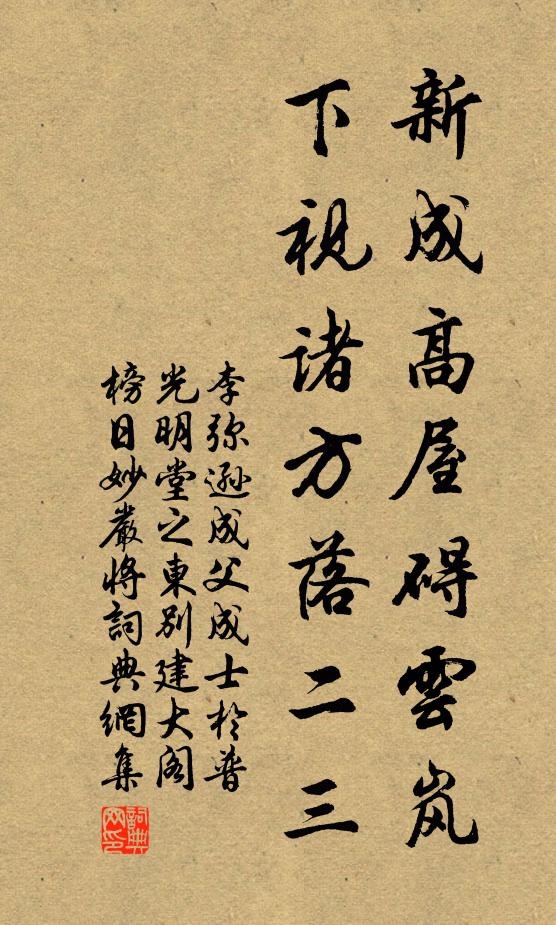 新成高屋碍雲岚
下视诸方落二三
李弥遜成父成士於普
光明堂之東别建大阁
榜日妙嚴将詞典網集
詞典网印